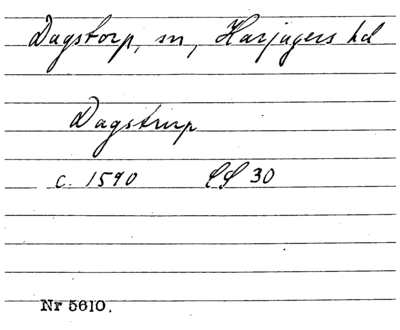 Dagstorp, sn, Harjagers hd
Dagstrup
c. 1590 LS 30
Nr 5610.